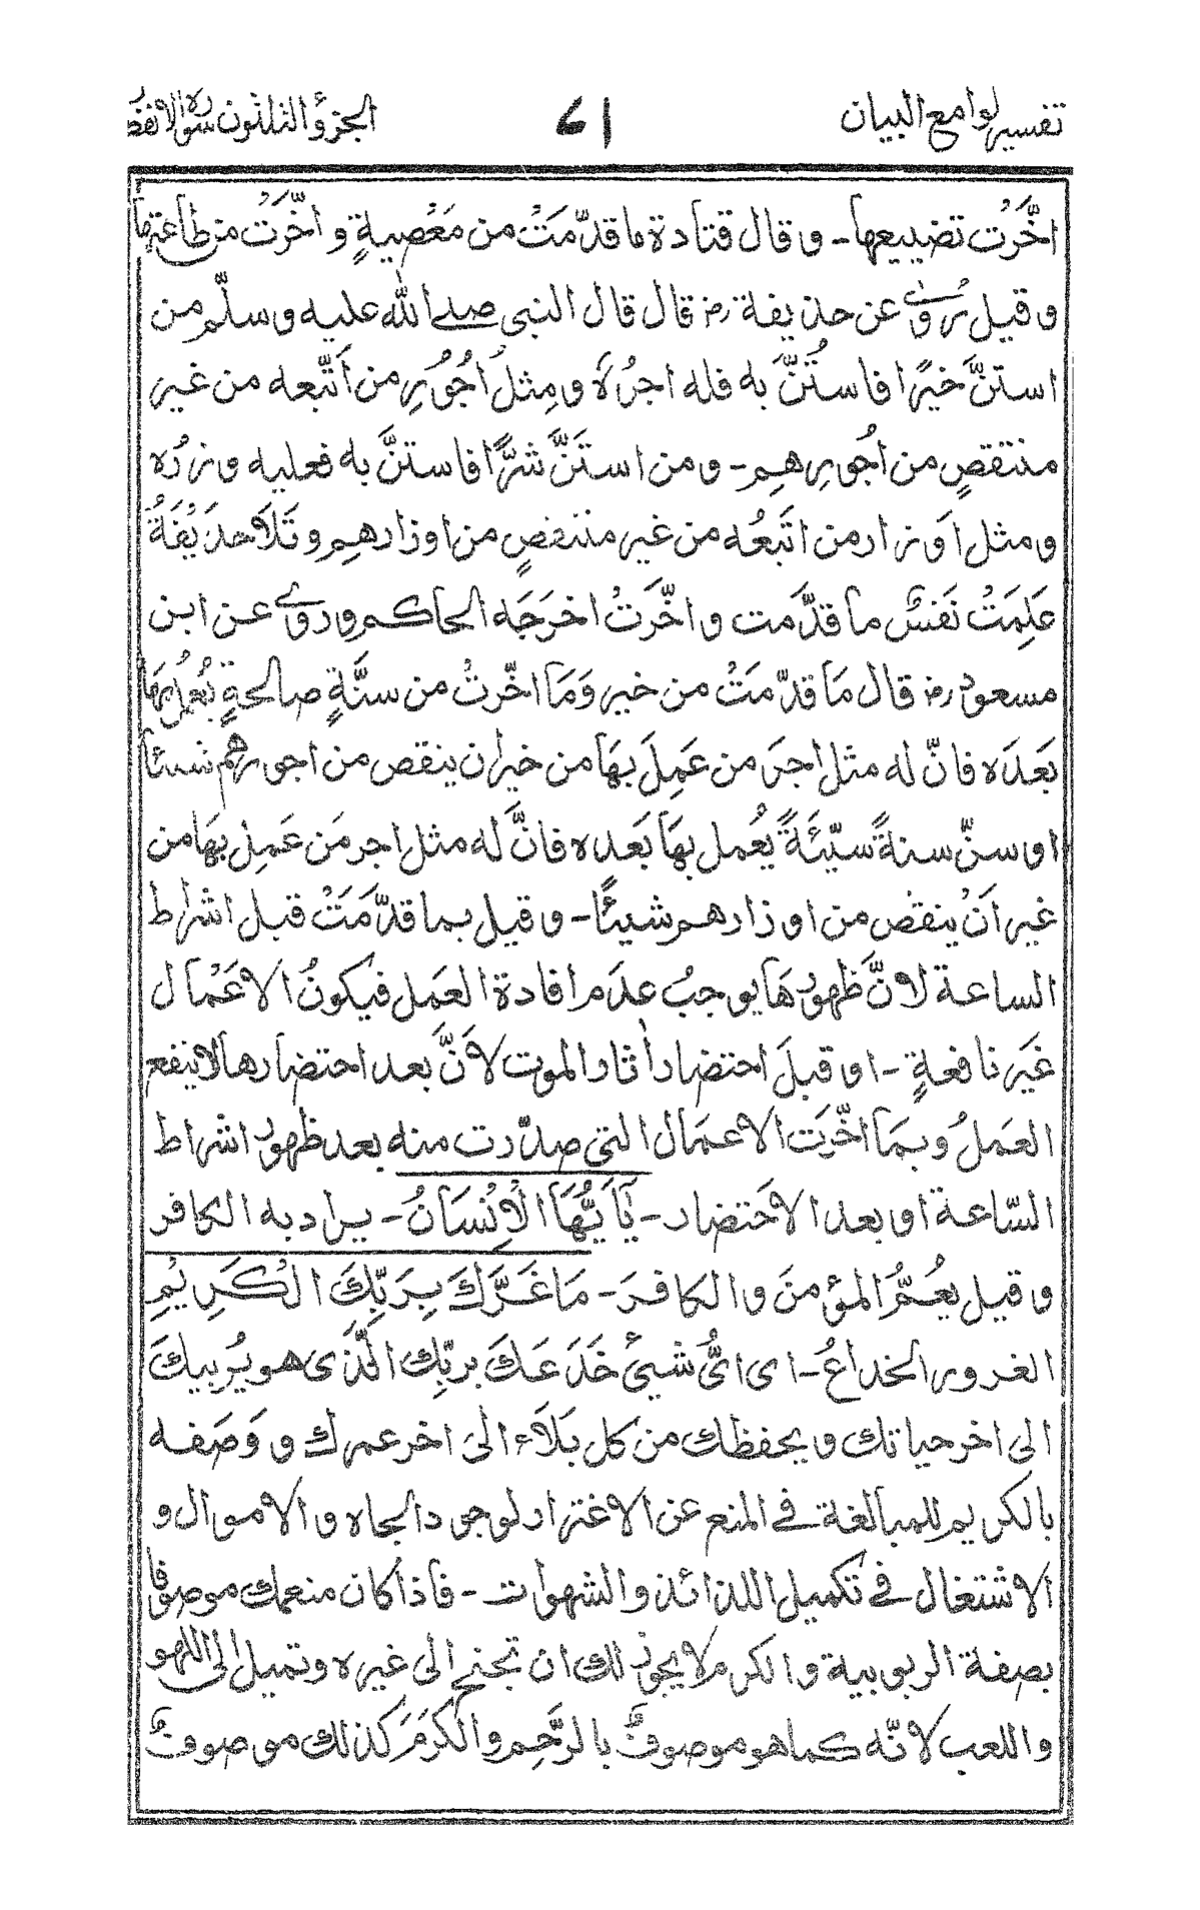 تفسير لوامع البيان ٤١ الجزؤ الثلثون سورة الانفط
اخَّرَت تضييعها - و قال قتادة ما قدّمَتْ من مَعْصيةٍ و اخَّرَتْ من طاعتها
و قيل رُوِىَ عن حذيفة رض قال قال النبى صلى الله عليه و سلّم من
استنَّ خيرًا فاستُنَّ به فله اجرُهٗ و مِثلُ اُجُورِ من اتّبعه من غير
منتقصٍ من اُجورِهِم - و من استَنَّ شرًّا فاستنَّ به فعليه وِزرُه
و مثل اَوزار من اتَّبَعُه من غير منتقصٍ من اوزارهم و تَلَا حذَيْفَةُ
عَلِمَتْ نَفسٌ ما قدَّمَت و اخَّرَتْ اخرَجَه الحاكم و روى عن ابن
مسعود رض قال مَا قدّمَتْ من خير وَمَا اخّرتْ من سنَّةٍ صالحةٍ يُعْمل بِهَا
بَعدَه فانّ له مثل اجرَ من عَمِلَ بِهَا من خير ان ينقص من اجورهم شيئًا
او سنّ سنةً سيّئَةً يُعمل بِهَا بَعده فانَّ له مثل اجر مَن عَمِل بِهَا من
غير اَنْ ينقص من اوزارهم شيئًا - و قيل بما قدّمَتْ قبل اشراط
الساعة لانَّ ظهورهَا يوجبُ عدَم افادة العَمل فيكونُ الاعْمال
غَير نافعةٍ - او قبلَ احتضار اٰثار الموت لانَّ بعد احتضارها لا ينفع
العَملُ وبمَا اخّرَت الاعمَال التى صدّرت منه بعد ظهور اشراط
السّاعة او بعد الاحتضار - يٰٓاَيُّهَا الْاِنْسَانُ - يراد به الكافر
و قيل يعُمُّ المؤمنَ و الكافرَ - مَا غَرَّكَ بِرَبِّكَ الْكَرِيْمِ
الغرور الخداعُ - اى اىُّ شيئٍ خَدَعَكَ بربِّك الَّذى هو يُربيكَ
الى اخر حياتك و يحفظك من كل بَلَاء الى اخر عمرك و وَصَفه
بالكريم للمبالغة فى المنع عن الاغترار لوجود الجاه و الاموال و
الاشتغال فى تكميل اللذائذ و الشهوات - فاذا كان منعمك موصوفا
بصفة الربوبية و الكرم لا يجوز لك ان تجنح الى غيره و تميل الى اللهو
و اللعب لانّه كما هو موصوفٌ بالرَّحِم و الكَرَمَ كذلك موصوفٌ